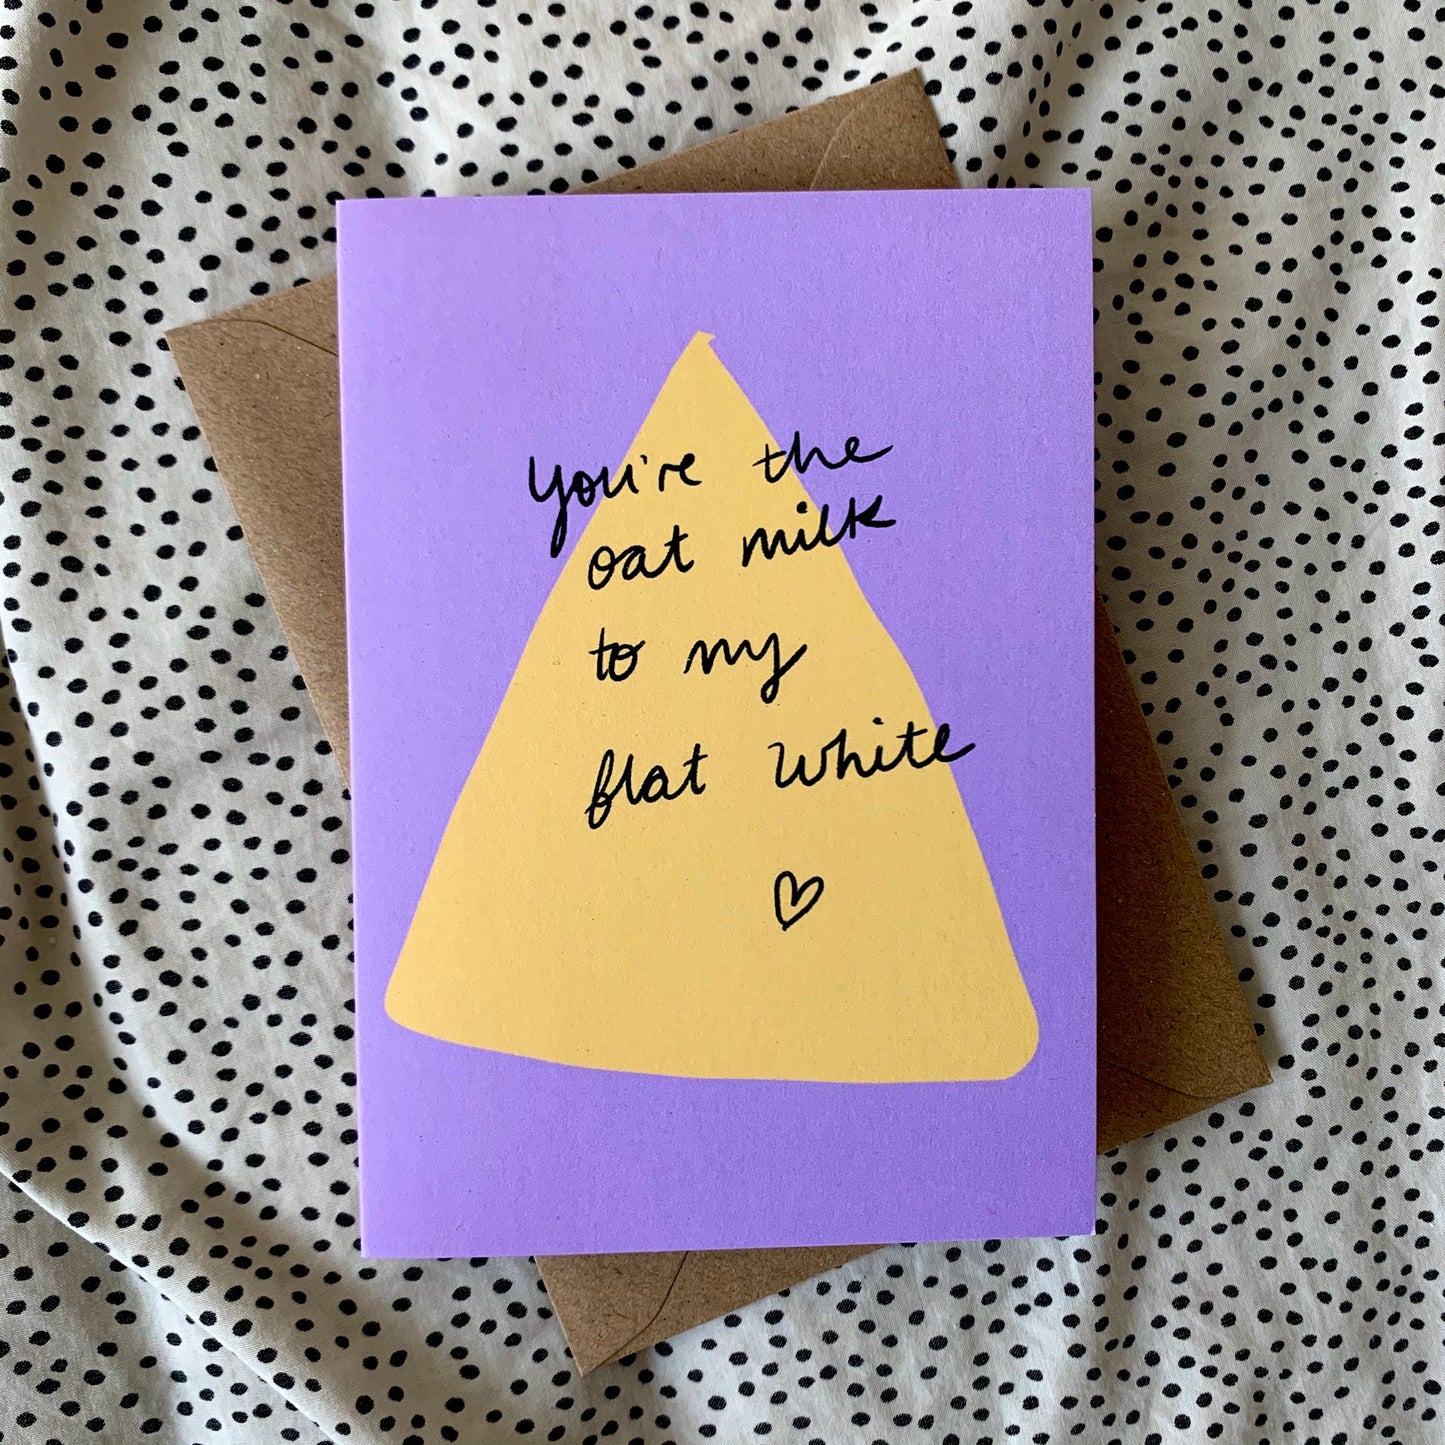 You're the
oat milk
to my
flat white